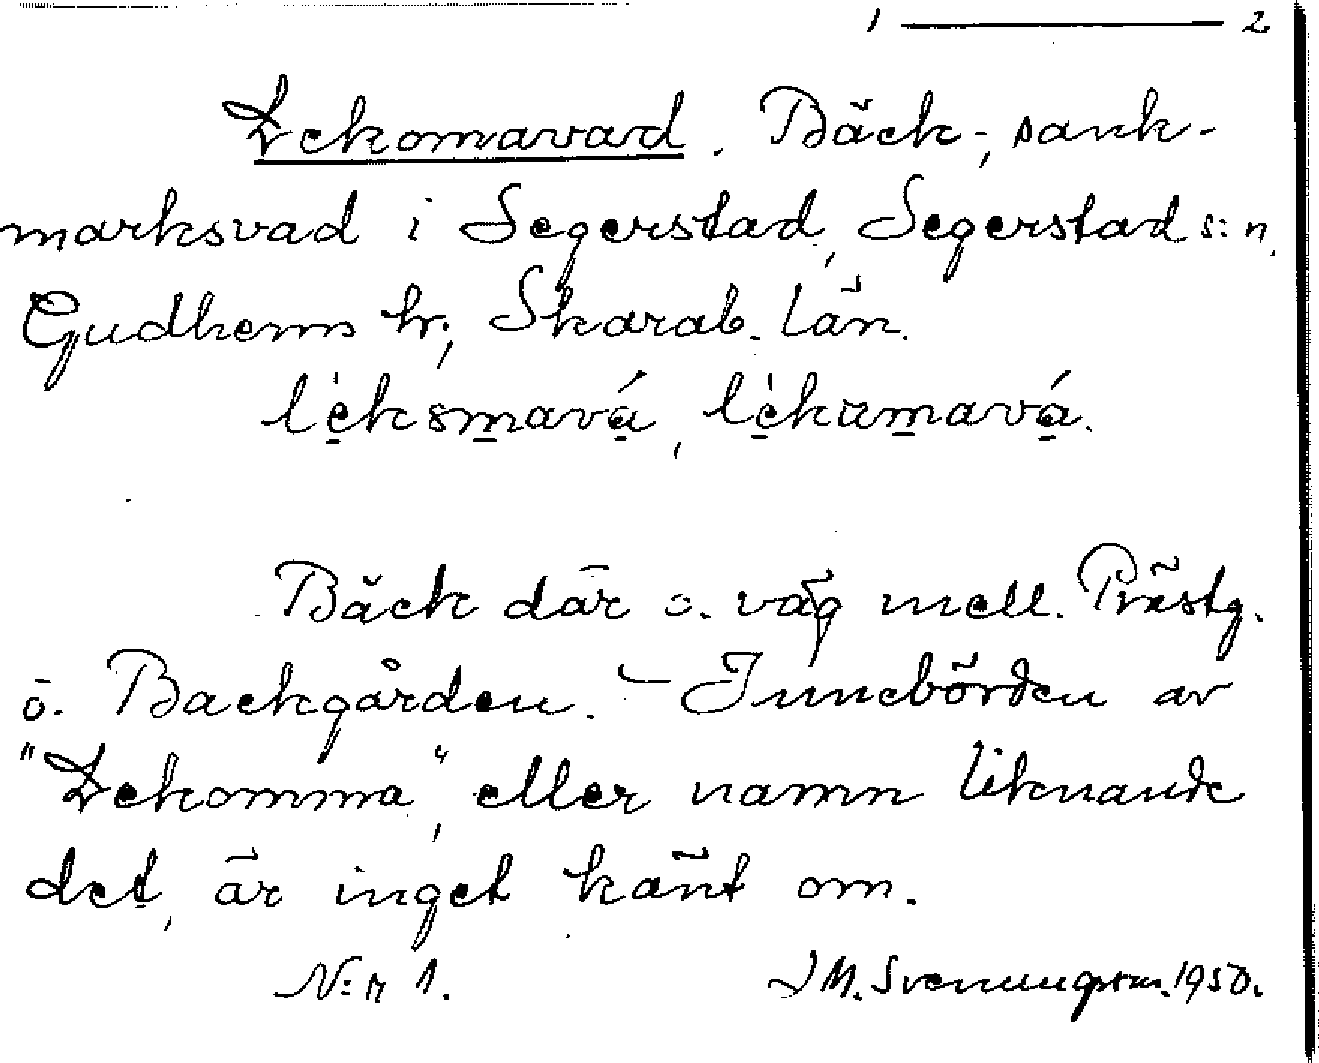 1 — 2
Lekomavad. Bäck-, sank-
marksvad i Segerstad, Segerstad s:n,
Gudhems hr, Skarab. län.
lèksmavá, lèkamavá.
Bäck där o. väg mell. Prästg.
o. Backgården. — Innebörden av
"Lekomma", eller namn liknande
det, är inget känt om.
N:r 1. I M. Svenungsson. 1950.